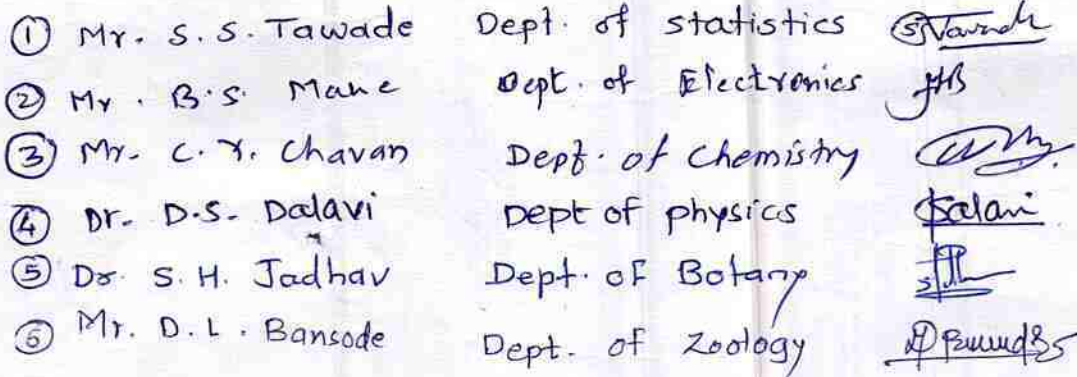 ① Mr. S. S. Tawade Dept. of statistics
② Mr. B. S. Mane Dept. of Electronics
③ Mr. C. Y. Chavan Dept. of chemistry
④ Dr. D.S. Dalavi Dept of physics
⑤ Dr. S. H. Jadhav Dept. of Botany
⑥ Mr. D. L. Bansode Dept. of Zoology